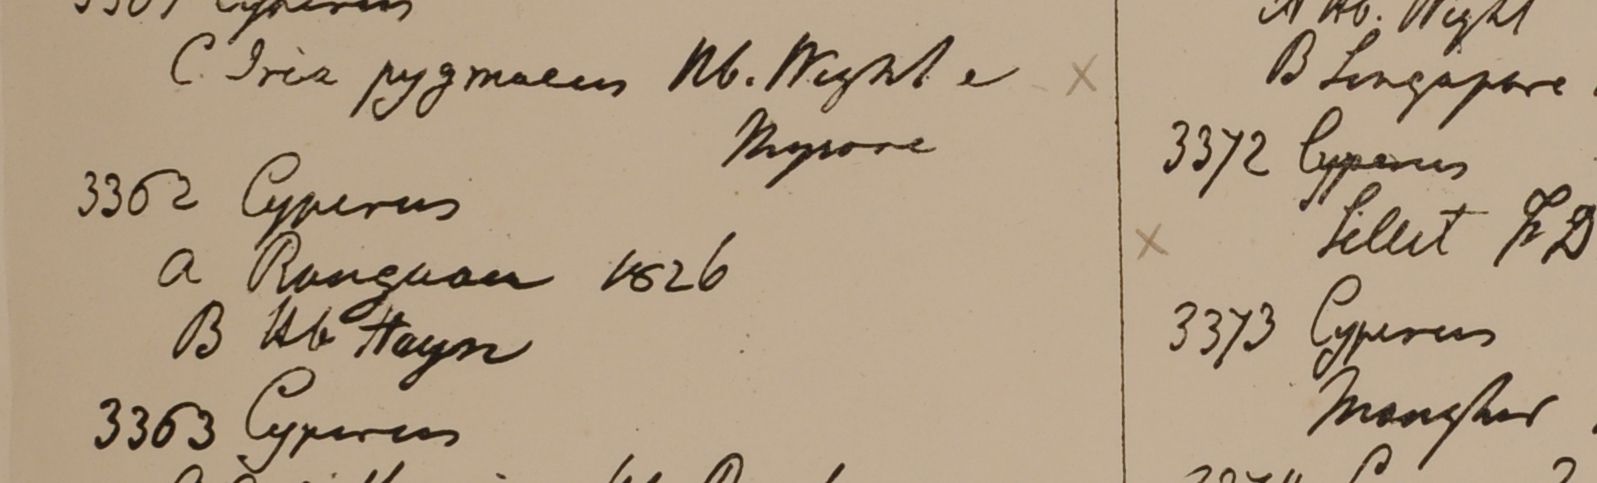 3361 Cyperus
C. Iria pygmaeus Hb. Wight e
Mysore
3362 Cyperus
a Rangoon 1826
B Hb Heyn
3363 Cyperus
A Hb. Wight
B Singapore
3372 Cyperus
Sillet
3373 Cyperus
Monghir